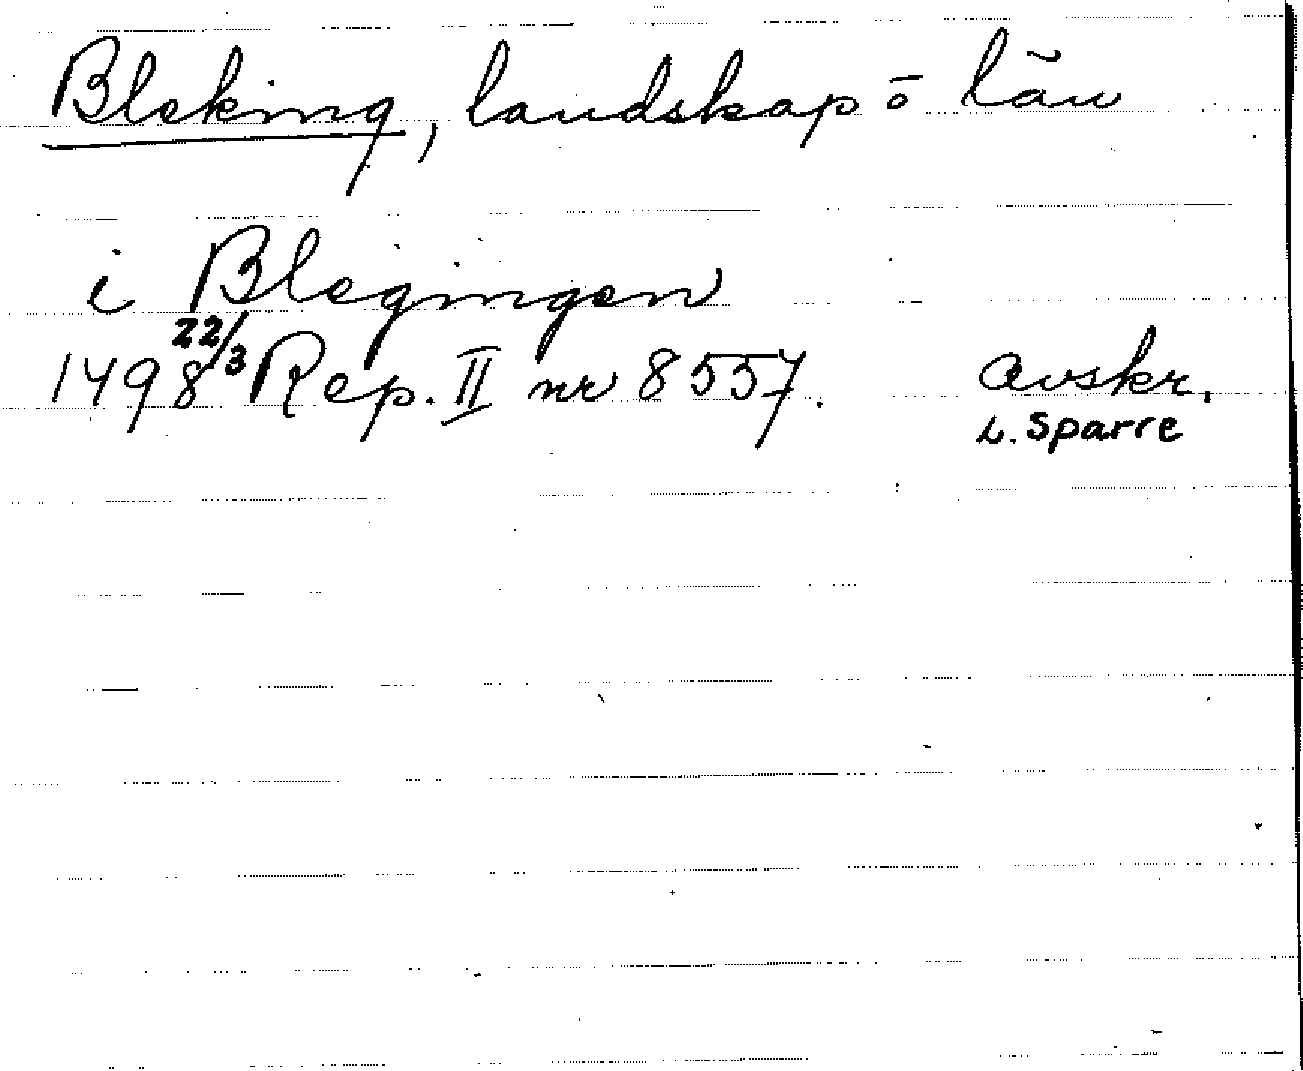 Bleking, landskap o län
i Blegingen
1498 22/3 Rep. II nr 8557. avskr.
L. Sparre